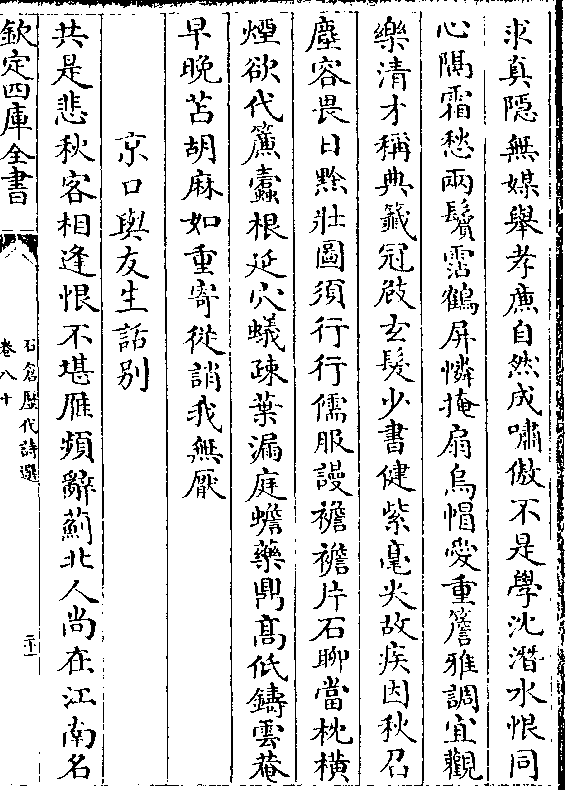 求真隠無媒舉孝亷自然成嘯傲不是學沈潛水恨同
心隔霜愁兩鬢霑鶴屏憐掩扇烏帽愛重簷雅調宜觀
樂清才稱典籖冠敧玄髮少書健紫毫尖故疾因秋召
塵容畏日黔壯圖須行行儒服謾襜襜片石聊當枕橫
煙欲代簾蠧根延穴蟻疎葉漏庭蟾藥鼎髙低鑄雲菴
早晚苫胡麻如重寄從誚我無厭
京口與友生話别
共是悲秋客相逢恨不堪雁頻辭薊北人尚在江南名
欽定四庫全書
石倉歷代詩選
卷八十
二十一